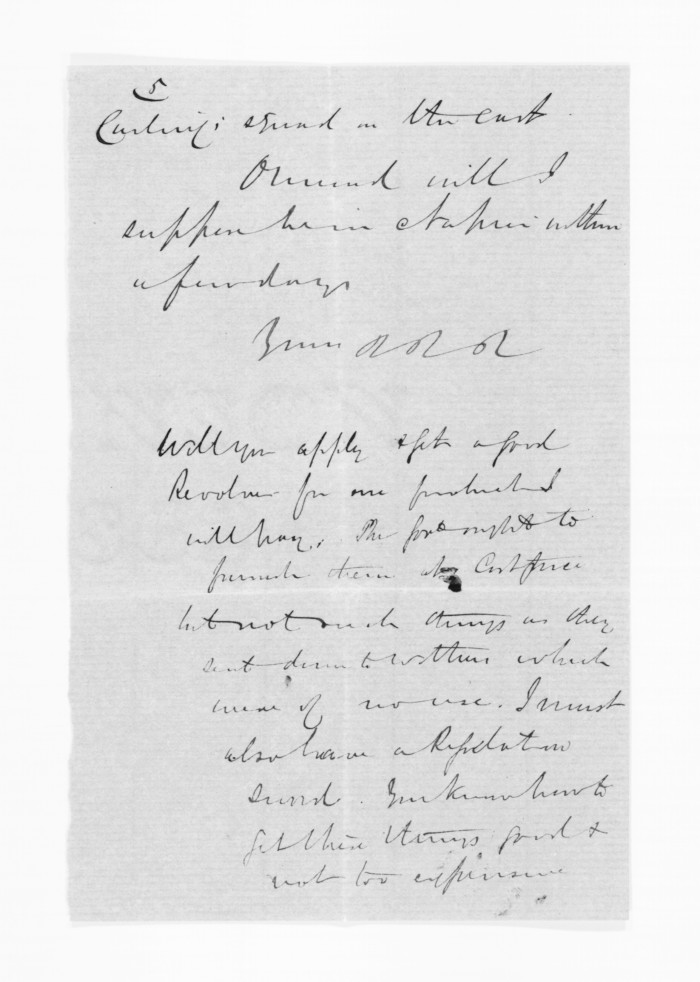 5
squad on the East
Ormond will I
suppose be in Napier within
a few days
Yours
Will you apply & get a good
Revolver for me for which I
will pay. The Govt ought to
furnish them at Cost price
but not such things as they
sent down to which
were of no use. I must
also have a Regulation
sword. You know how to
get these things good &
not too expensive